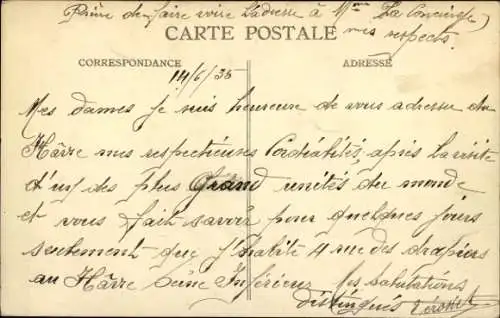 Prière de faire voire L'adresse à Mme La Concierge
mes respects.
CARTE POSTALE
CORRESPONDANCE
ADRESSE
14/6/35
Mes dames je suis heureuse de vous adresse du
Hâvre mes respectieuses Cordialités, après La visite
d'un des plus Grand unités du monde
et vous fait savoir pour quelques jours
seulement que j'habite 4 rue des drapiers
au Hâvre Seine Inférieure Mes salutations
distingués